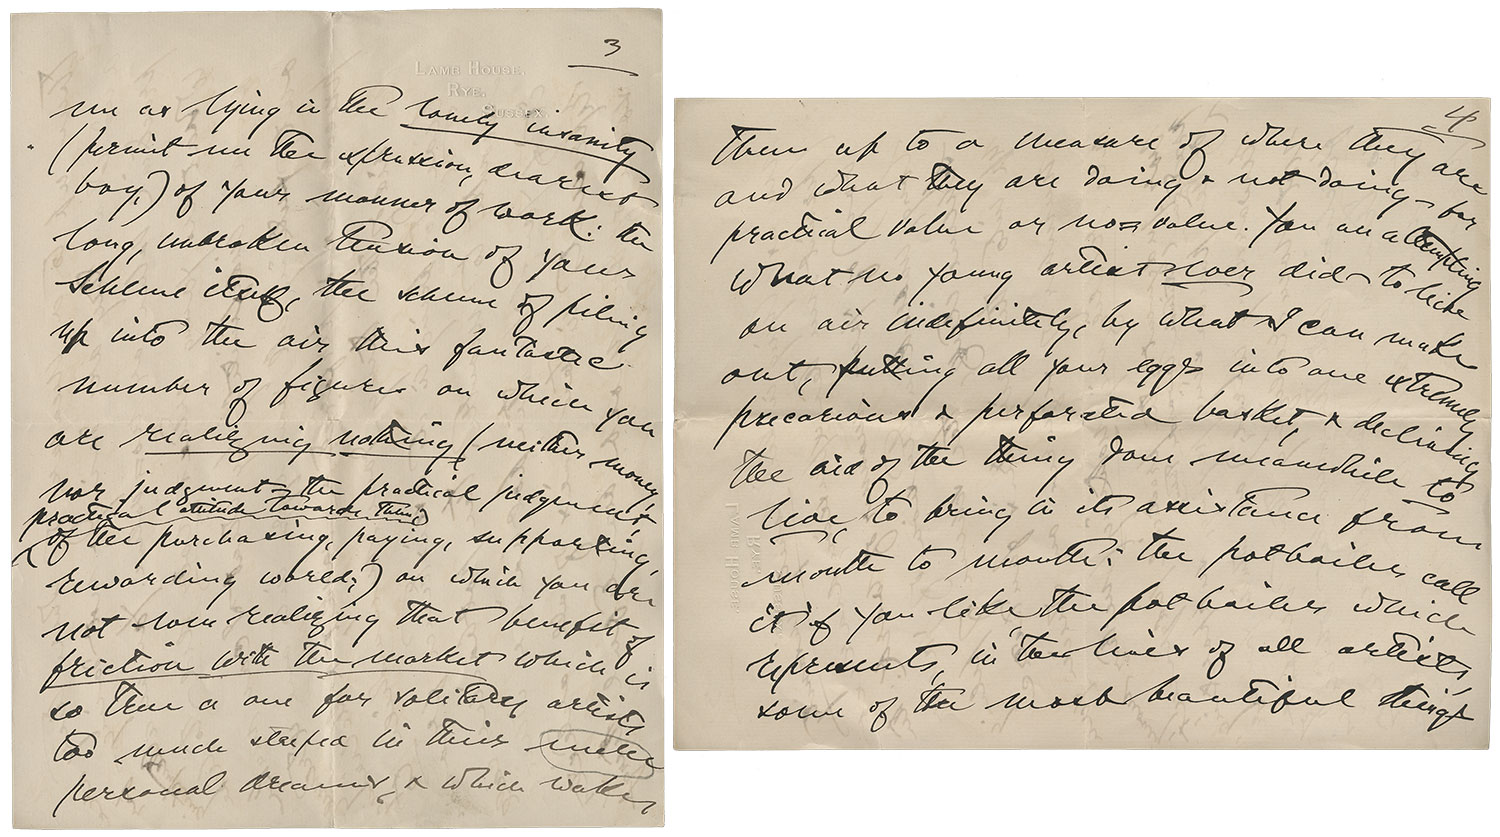 3
LAMB HOUSE,
RYE,
SUSSEX.
me as lying in the lonely insanity
(permit me the expression, dearest
boy,) of your manner of work: the
long, unbroken tension of your
scheme itself, the scheme of piling
up into the air this fantastic
number of figures on which you
are realizing nothing (neither money,
nor judgment—the practical judgment,
practical attitude towards them,
of the purchasing, paying, supporting,
rewarding world;) on which you are
not now realizing that benefit of
friction with the market which is
so true a one for solitary artists
too much steeped in their mere
personal dreams, & which wakes
4
them up to a measure of where they are
and what they are doing & not doing—for
practical value or no-value. You are attempting
what no young artist ever did—to live
on air indefinitely, by what I can make
out, putting all your eggs into one extremely
precarious & perforated basket, & declining
the aid of the thing done meanwhile to
live, to bring in its assistance from
month to month: the potboiler call
it if you like the potboiler which
represents, in the lives of all artists,
some of the most beautiful things
LAMB HOUSE,
RYE,